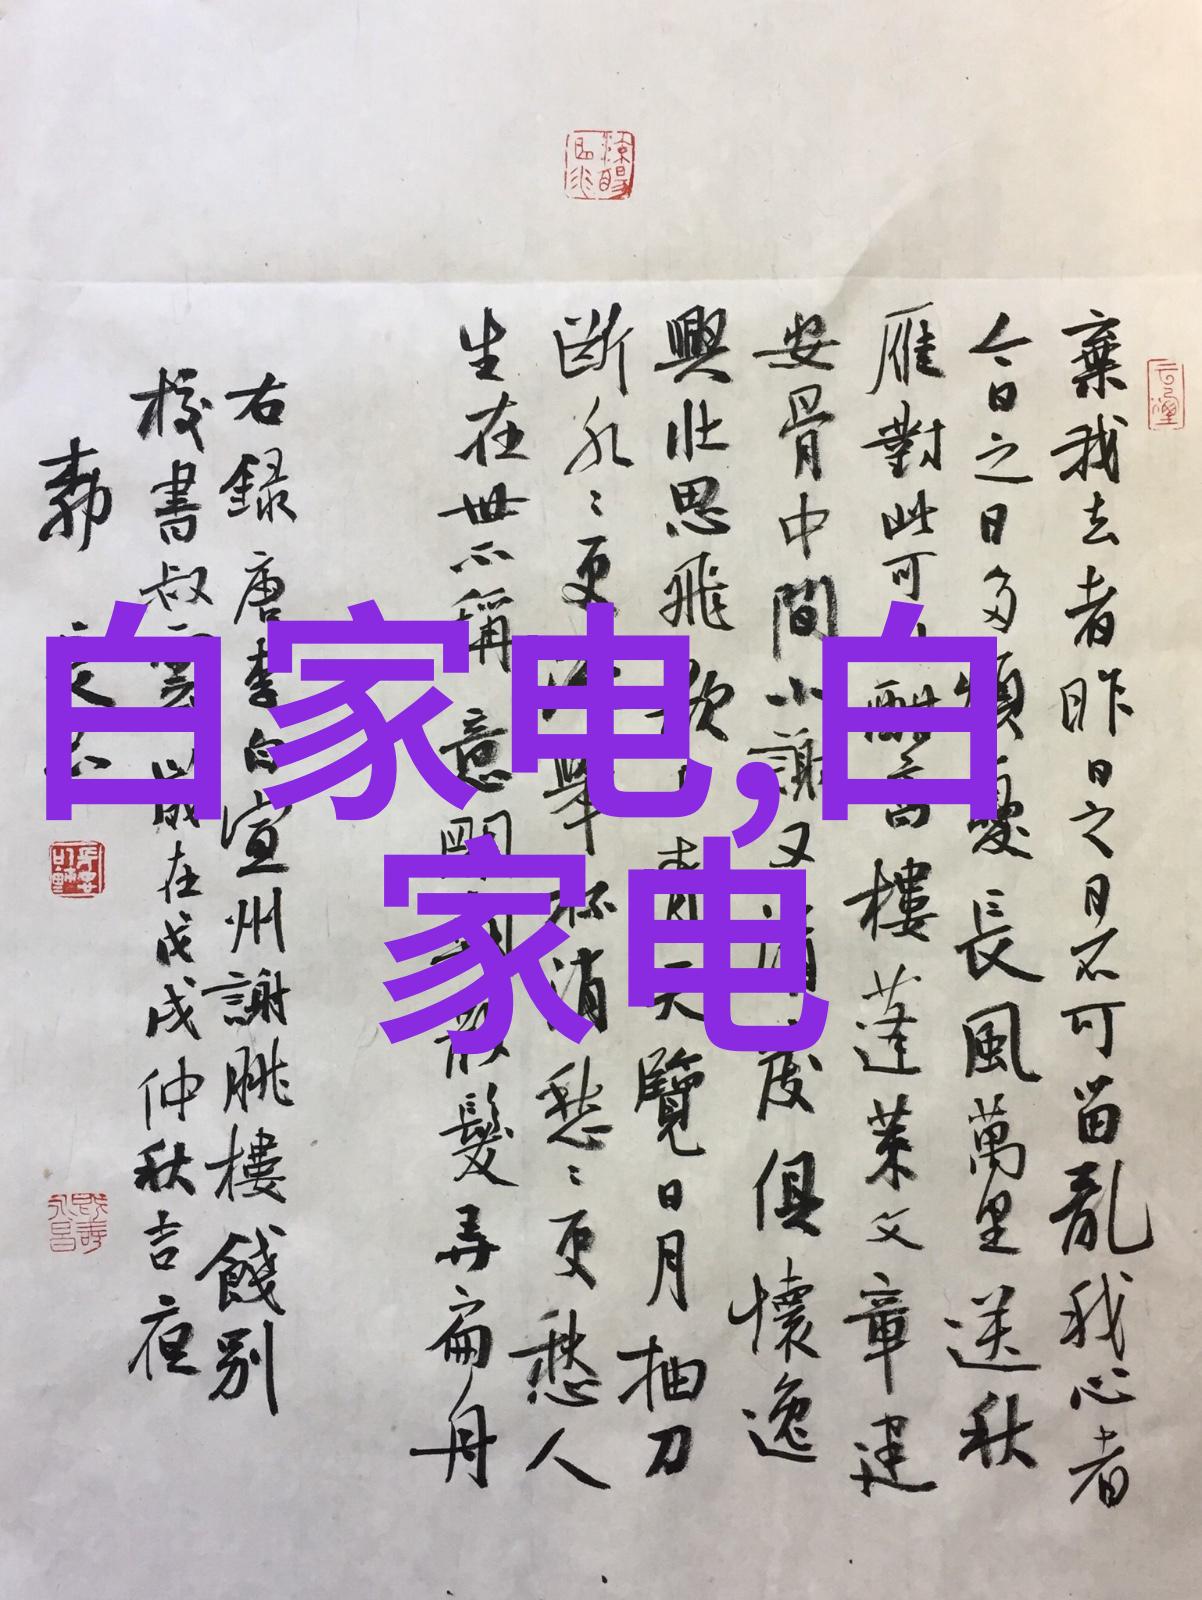 白家电,白
家电
棄我去者昨日之日不可留亂我心者
今日之日多煩憂長風萬里送秋
雁對此可酣高樓蓬萊文章建
安骨中間小謝又清發俱懷逸
興壯思飛欲青天覽日月抽刀
斷水〻更舉杯消愁〻更愁人
生在世不稱意明散髮弄扁舟
右録唐李白宣州謝朓樓餞別
校書叔雲歲在戊戌仲秋吉夜